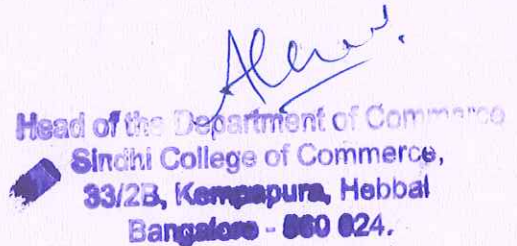 Head of the Department of Commerce
Sindhi College of Commerce,
33/2B, Kempapura, Hebbal
Bangalore - 560 024.